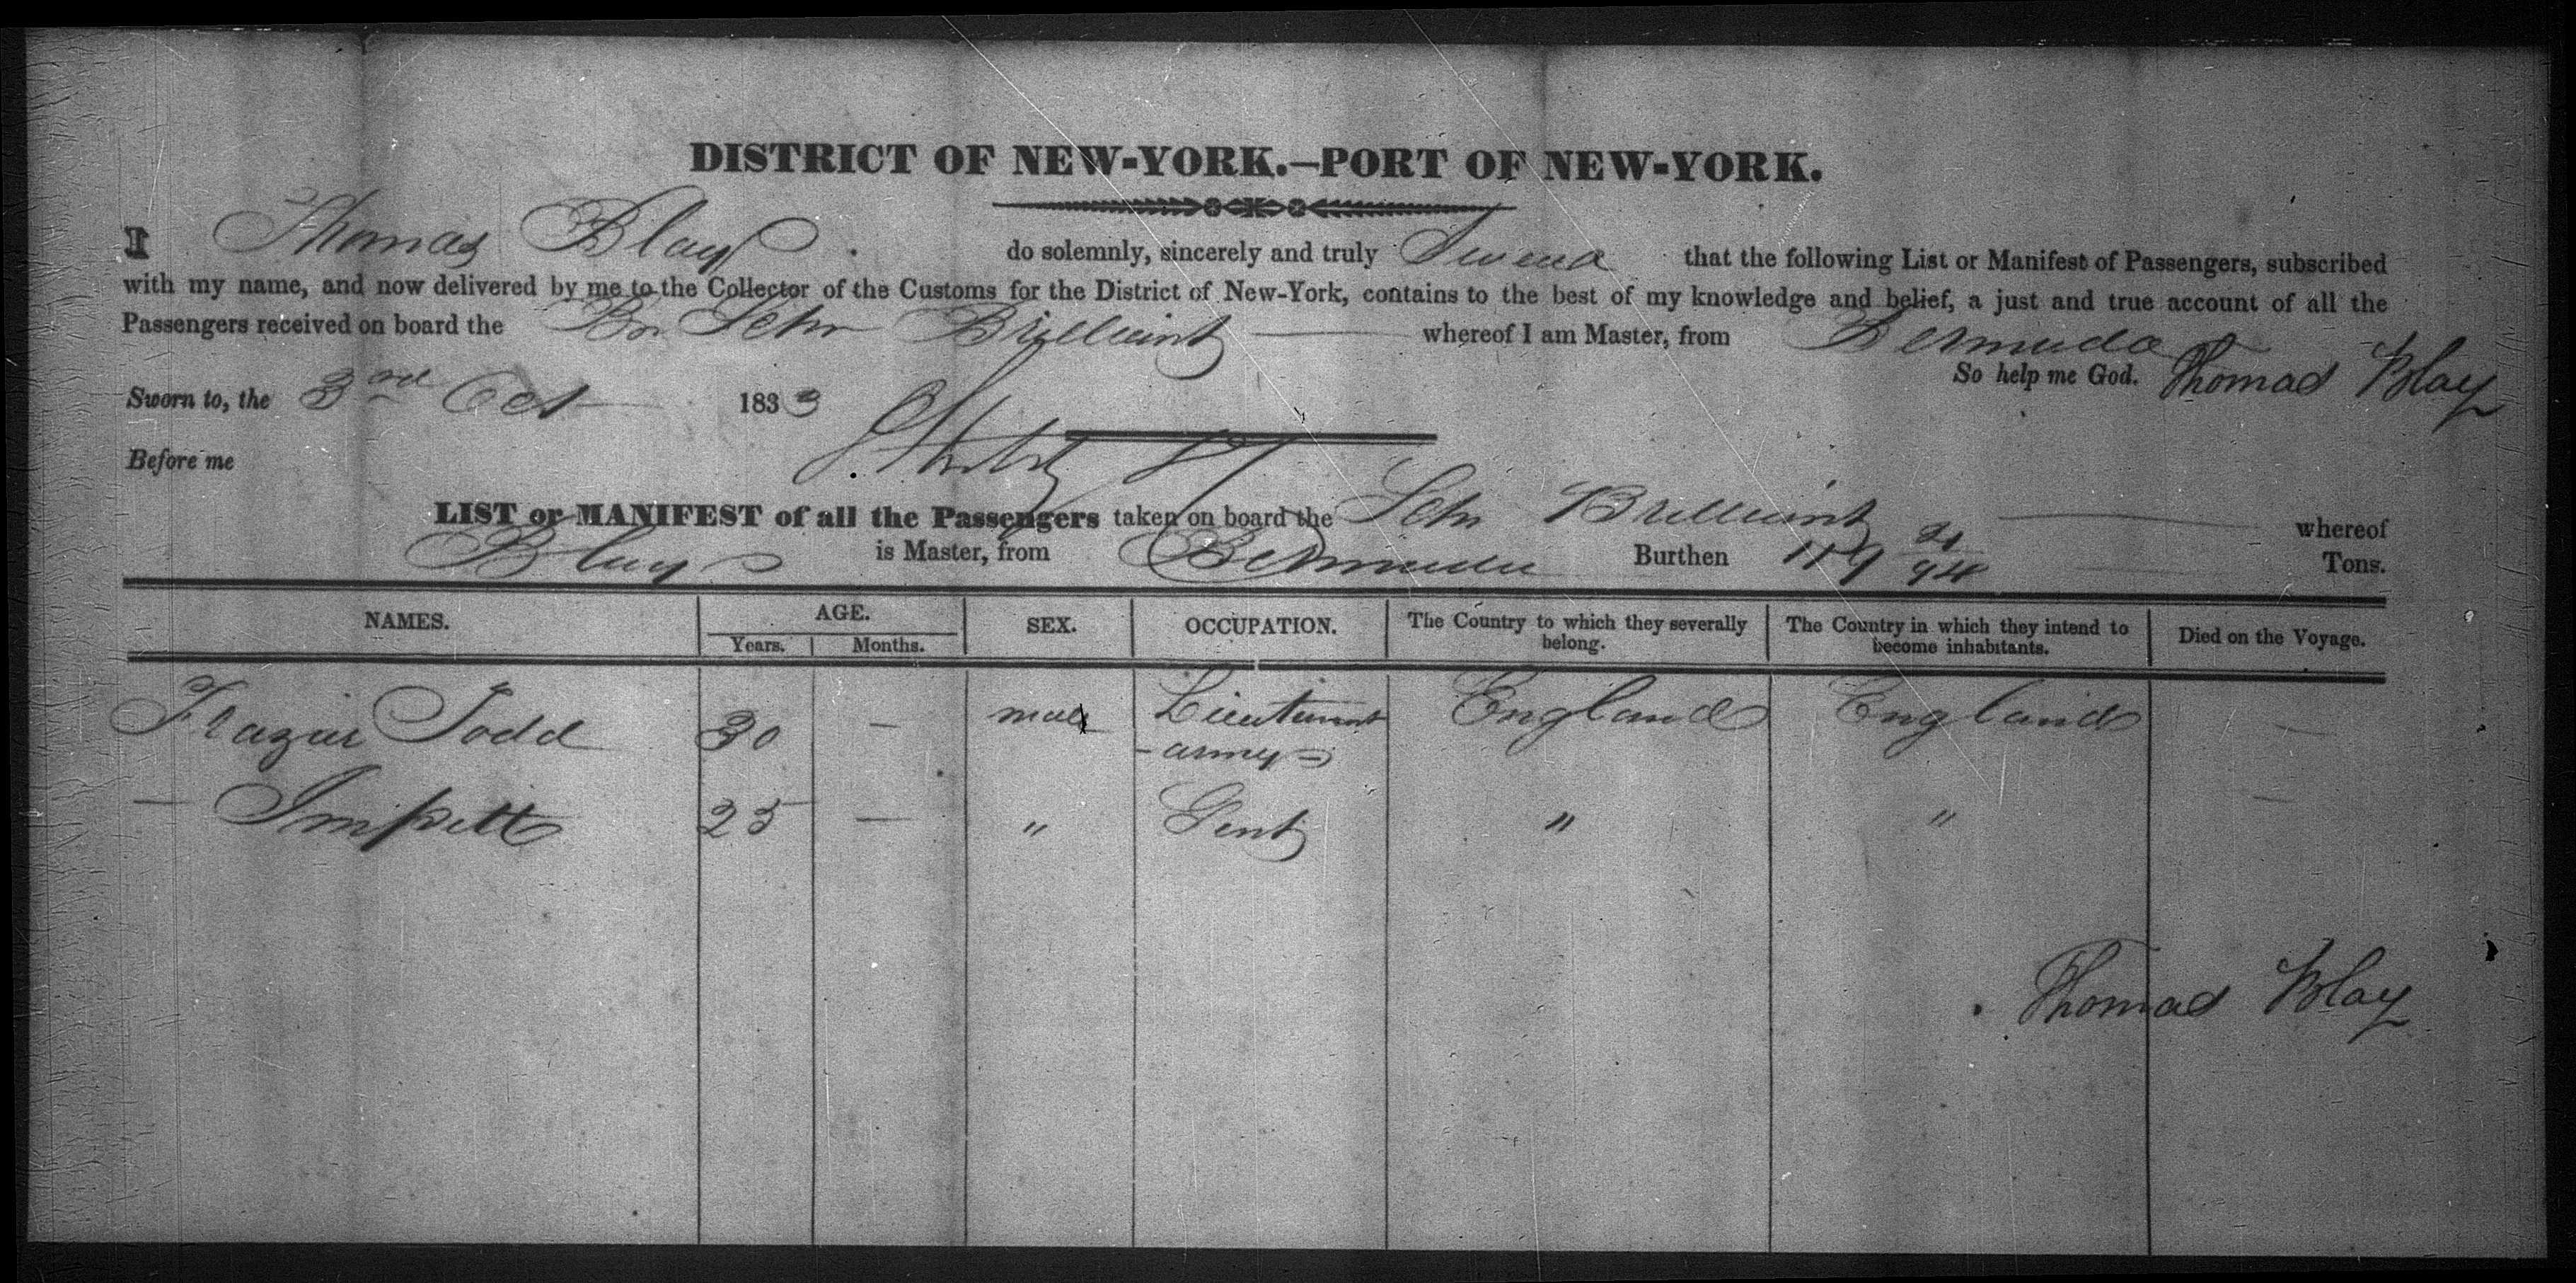 DISTRICT OF NEW-YORK.—PORT OF NEW-YORK.
I Thomas Blay do solemnly, sincerely and truly Swear that the following List or Manifest of Passengers, subscribed
with my name, and now delivered by me to the Collector of the Customs for the District of New-York, contains to the best of my knowledge and belief, a just and true account of all the
Passengers received on board the Br Schr Brilliant whereof I am Master, from Bermuda
So help me God. Thomas Blay
Sworn to, the 3rd Oct 1833
Before me
LIST or MANIFEST of all the Passengers taken on board the Schr Brilliant whereof
Blay is Master, from Bermuda Burthen 119 Tons.
NAMES. AGE. SEX. OCCUPATION. The Country to which they severally belong. The Country in which they intend to become inhabitants. Died on the Voyage.
Years. Months.
Frazier Todd 30 — male Lieutenant England England —
-army-
— Impett 25 — " Gent " " —
Thomas Blay